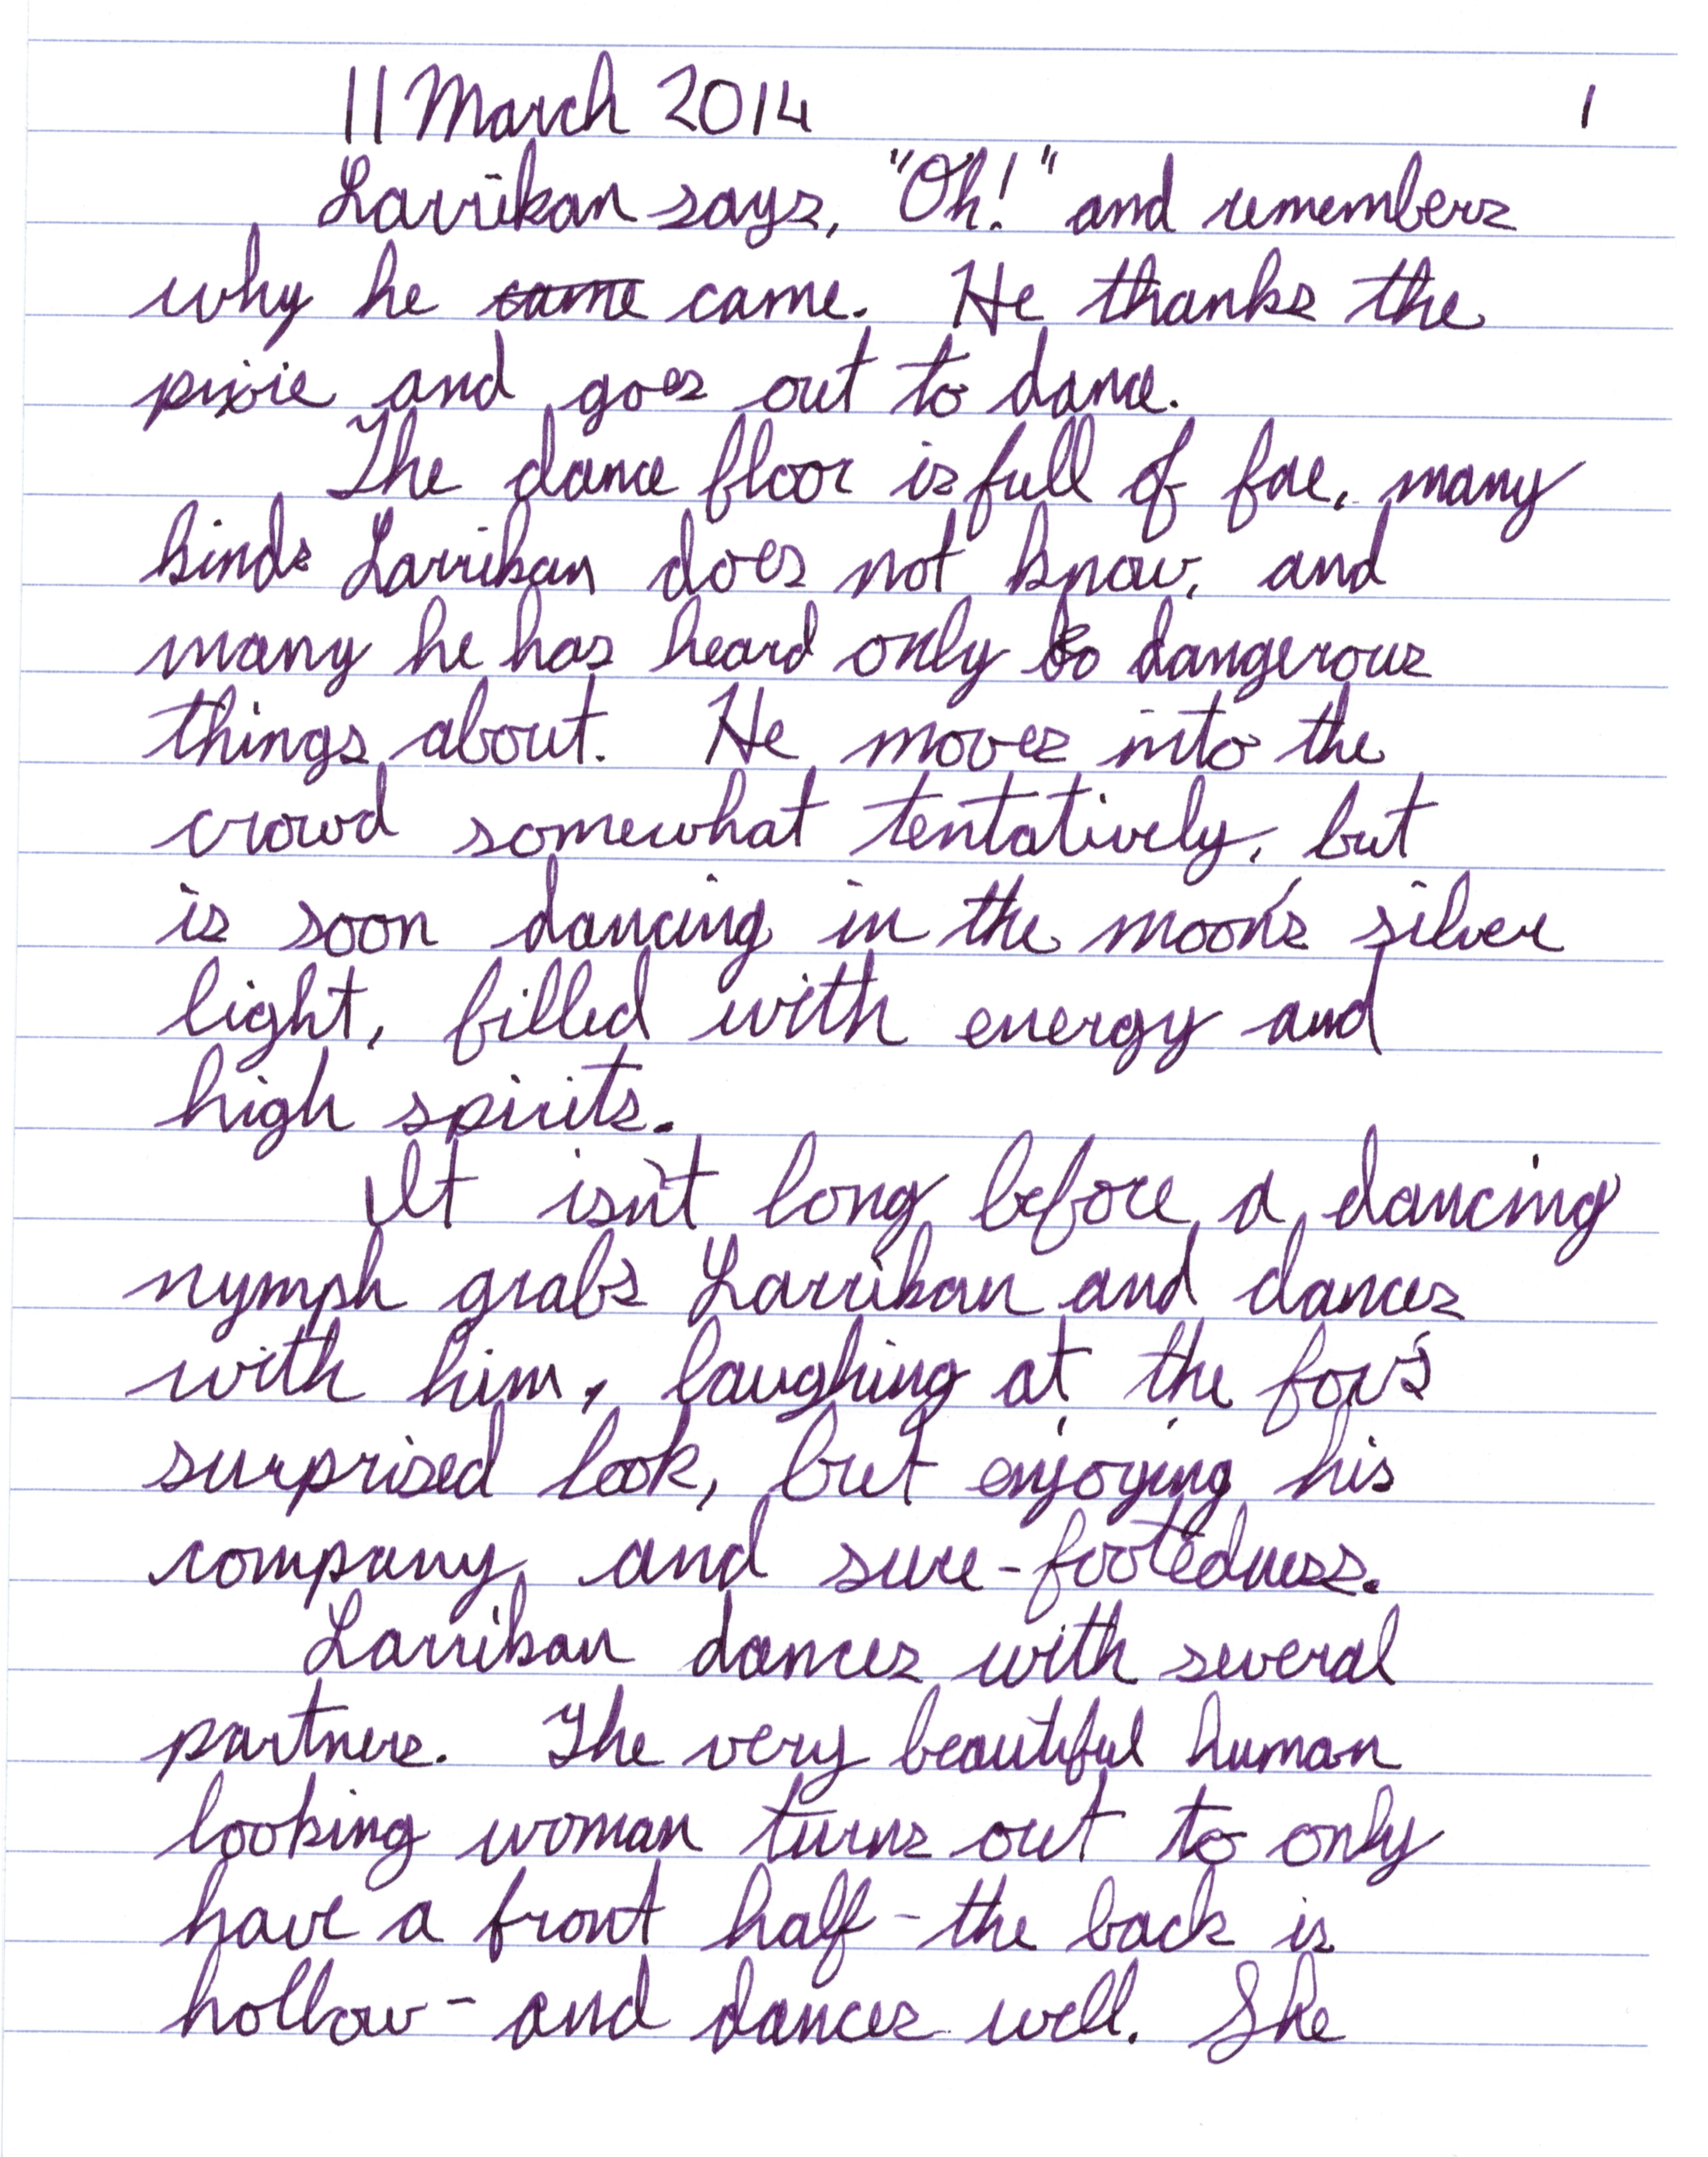 11 March 2014 1
Larrikan says, "Oh!" and remembers
why he came came. He thanks the
pixie and goes out to dance.
The dance floor is full of fae, many
kinds Larrikan does not know, and
many he has heard only dangerous
things about. He moves into the
crowd somewhat tentatively, but
is soon dancing in the moon's silver
light, filled with energy and
high spirits.
It isn't long before a dancing
nymph grabs Larrikan and dances
with him, laughing at the fox's
surprised look, but enjoying his
company and sure-footedness.
Larrikan dances with several
partners. The very beautiful human
looking woman turns out to only
have a front half - the back is
hollow - and dances well. She